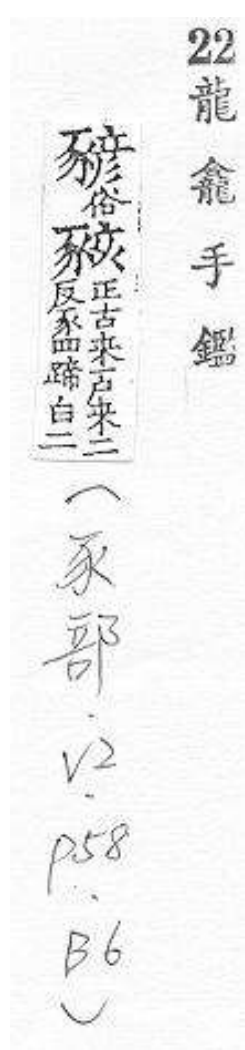 22龍龕手鑑
俗豥正古來户來二反豕四蹄白二(豕部.V2.p58.B6)